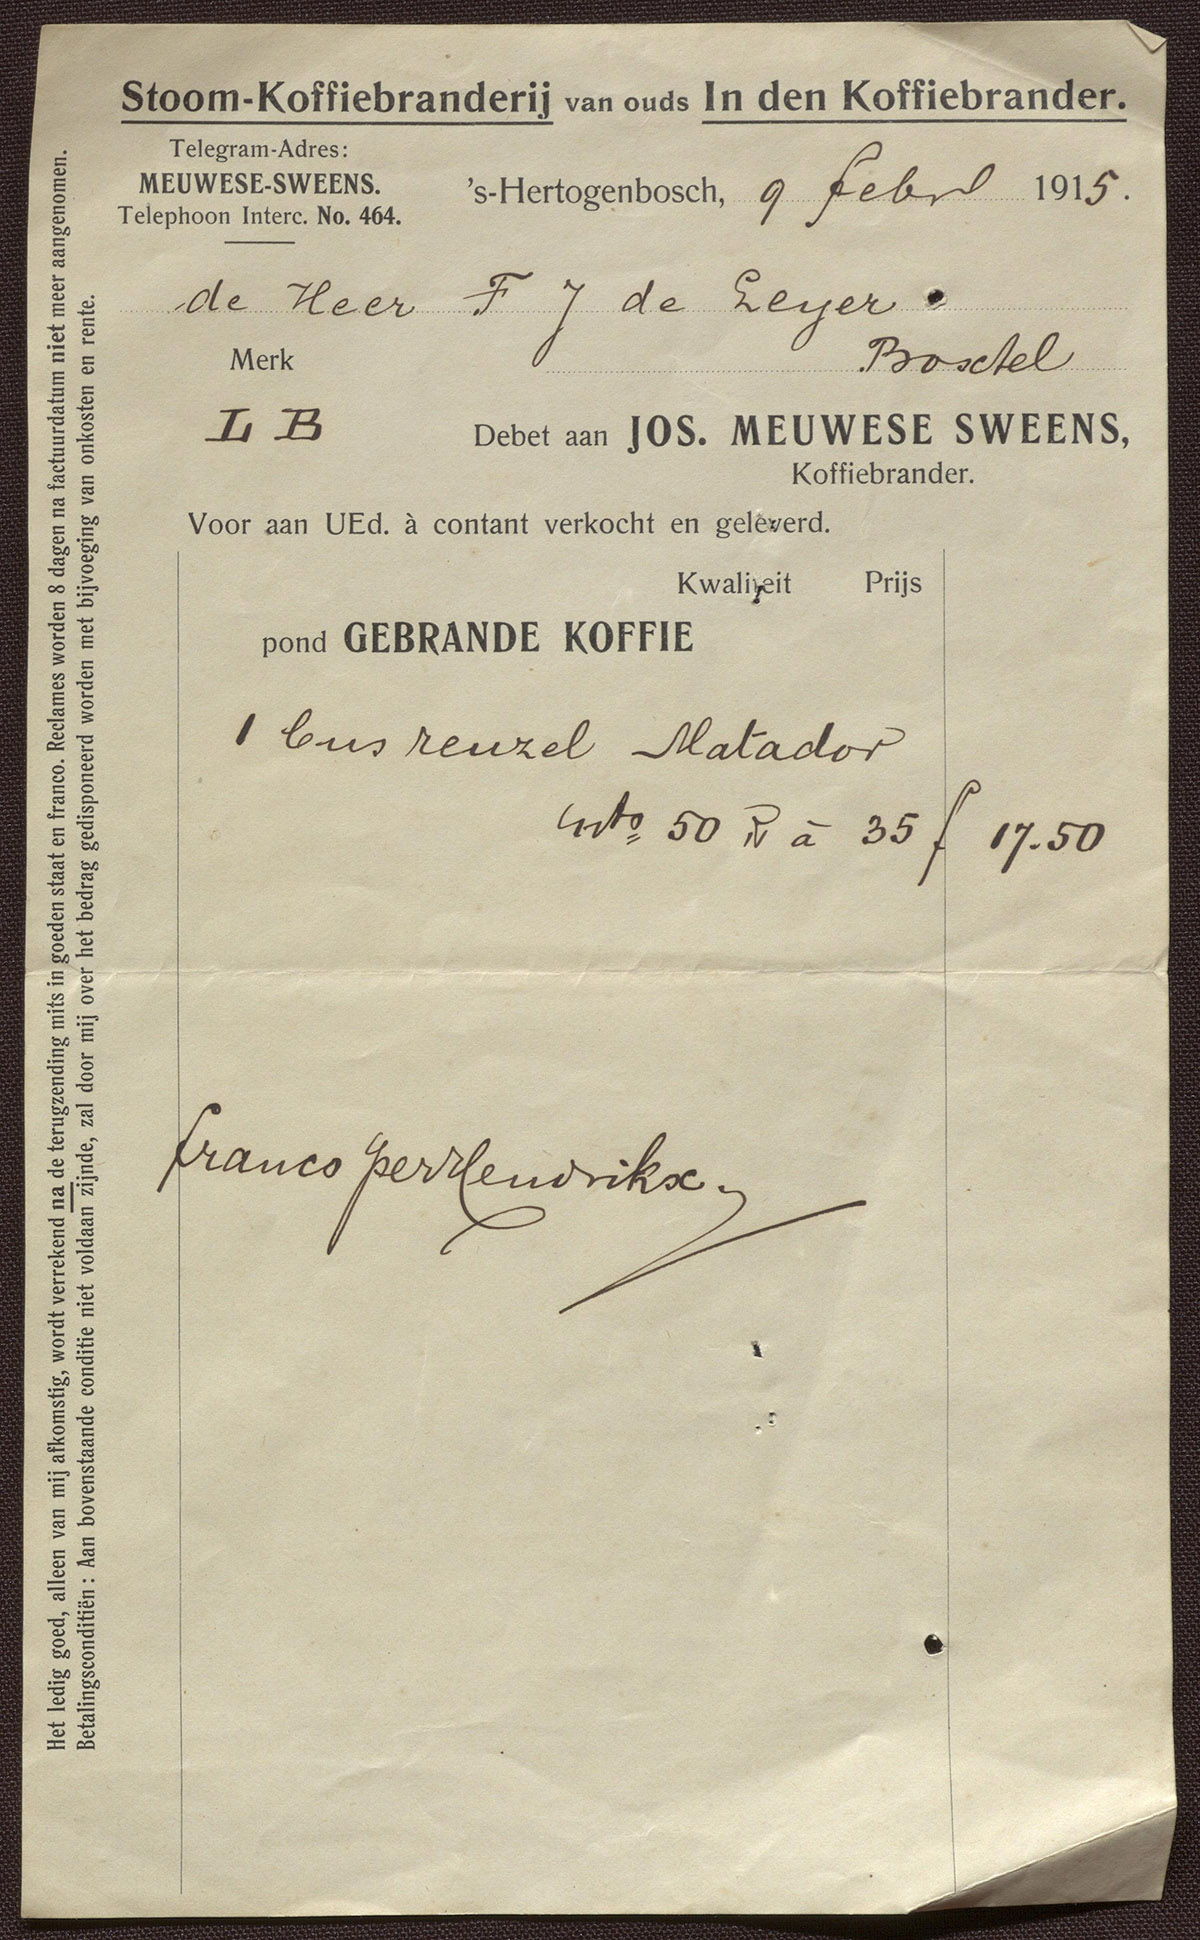 Stoom-Koffiebranderij van ouds In den Koffiebrander.
Telegram-Adres:
MEUWESE-SWEENS.
Telephoon Interc. No. 464.
's-Hertogenbosch, 9 febr 1915.
de Heer F J de Leyer
Boxtel
Merk
L B
Debet aan JOS. MEUWESE SWEENS,
Koffiebrander.
Voor aan UEd. à contant verkocht en geleverd.
Kwaliteit Prijs
pond GEBRANDE KOFFIE
1 bus reuzel Matador
nto 50 à 35 f 17.50
franco per Hendrikx
Het ledig goed, alleen van mij afkomstig, wordt verrekend na de terugzending mits in goeden staat en franco. Reclames worden 8 dagen na factuurdatum niet meer aangenomen.
Betalingsconditiën: Aan bovenstaande conditie niet voldaan zijnde, zal door mij over het bedrag gedisponeerd worden met bijvoeging van onkosten en rente.